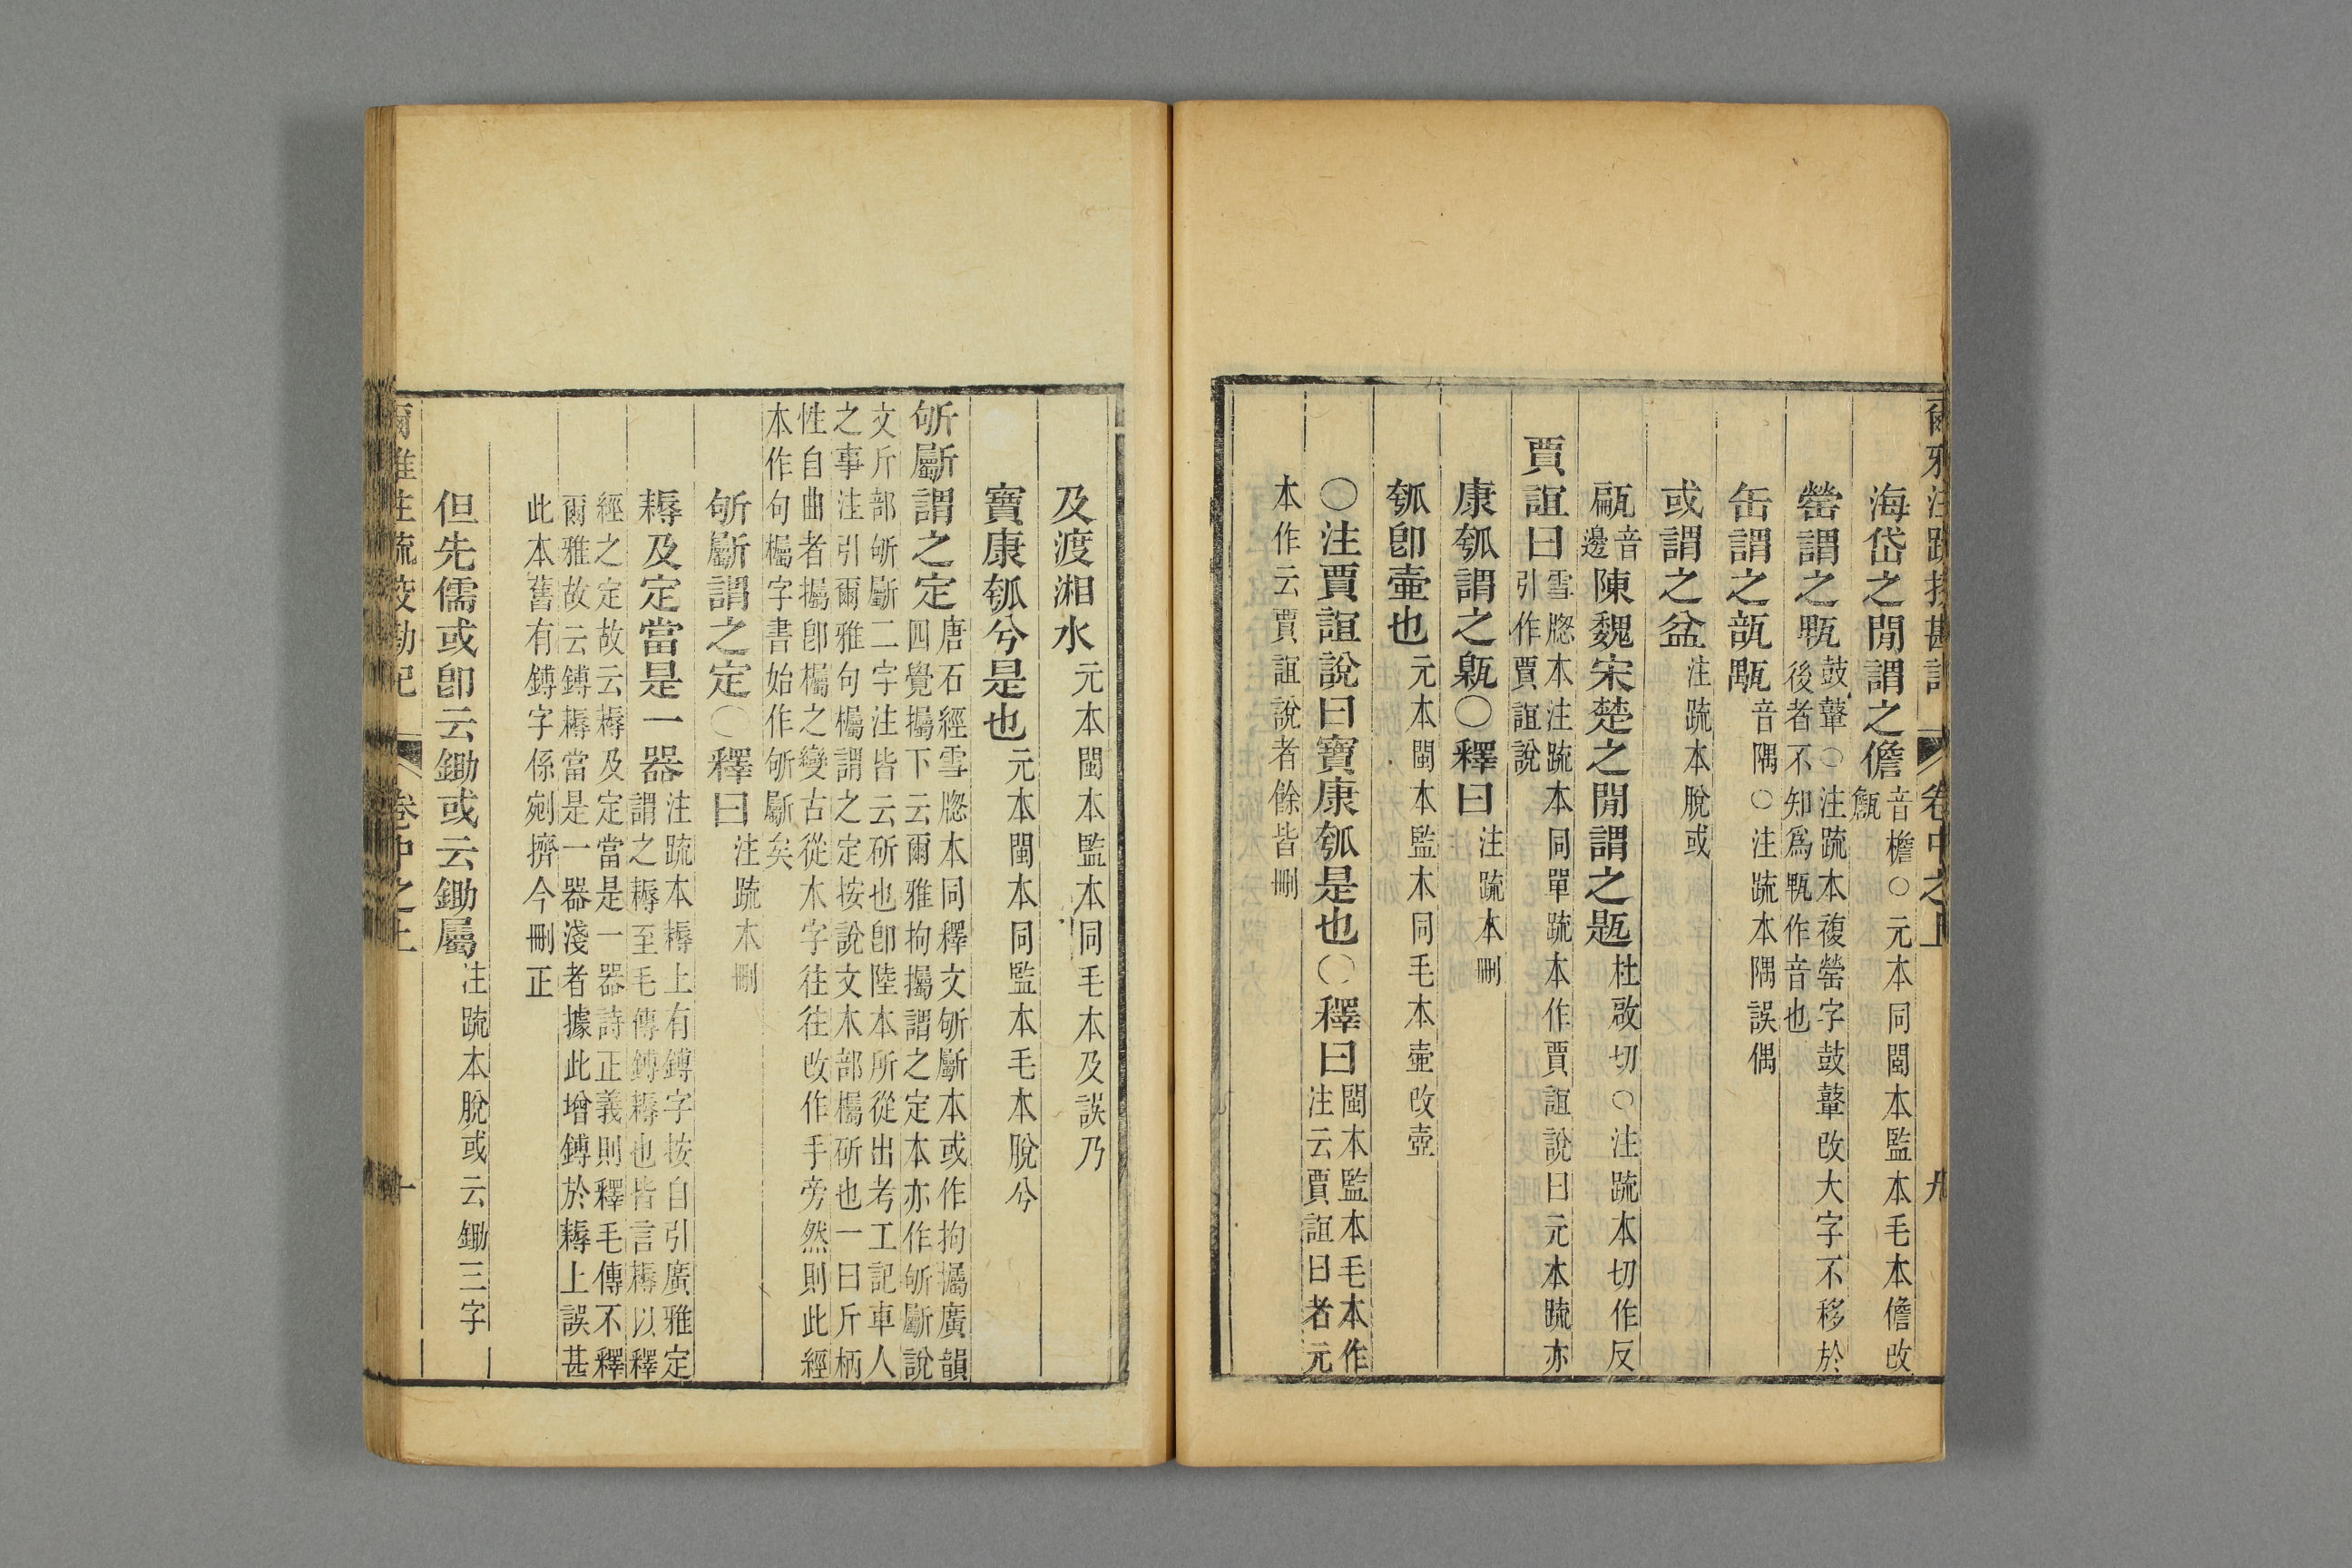 爾雅注疏挍勘記 卷中之上 九
海岱之閒謂之儋音檐○元本同閩本監本毛本儋改甔
罃謂之㼚鼓鼙○注疏本複罃字鼓鼙改大字不移於後者不知爲㼚作音也
缶謂之瓿㼶音隅○注疏本隅誤偶
或謂之盆注疏本脫或
甂音邊陳魏宋楚之閒謂之㼵杜啟切○注疏本切作反
賈誼曰雪牕本注疏本同單疏本作賈誼說曰元本疏亦引作賈誼說
康瓠謂之甈○釋曰注疏本刪
瓠卽壷也元本閩本監本同毛本壷改壺
○注賈誼說曰寶康瓠是也○釋曰閩本監本毛本作注云賈誼曰者元
本作云賈誼說者餘皆刪
及渡湘水元本閩本監本同毛本及誤乃
寶康瓠兮是也元本閩本同監本毛本脫兮
斪斸謂之定唐石經雪牕本同釋文斪斸本或作拘攦廣韻四覺攦下云爾雅拘攦謂之定本亦作斪斸說
文斤部斪斸二字注皆云斫也卽陸本所從出考工記車人之事注引爾雅句欘謂之定按說文木部欘斫也一曰斤柄
性自曲者攦卽欘之變古從木字往往改作手旁然則此經本作句欘字書始作斪斸矣
斪斸謂之定○釋曰注疏本刪
耨及定當是一器注疏本耨上有鎛字按自引廣雅定謂之耨至毛傳鎛耨也皆言耨以釋
經之定故云耨及定當是一器詩正義則釋毛傳不釋爾雅故云鎛耨當是一器淺者據此增鎛於耨上誤甚
此本舊有鎛字係剜擠今刪正
但先儒或卽云鋤或云鋤屬注疏本脫或云鋤三字
爾雅注疏挍勘記 卷中之上 十